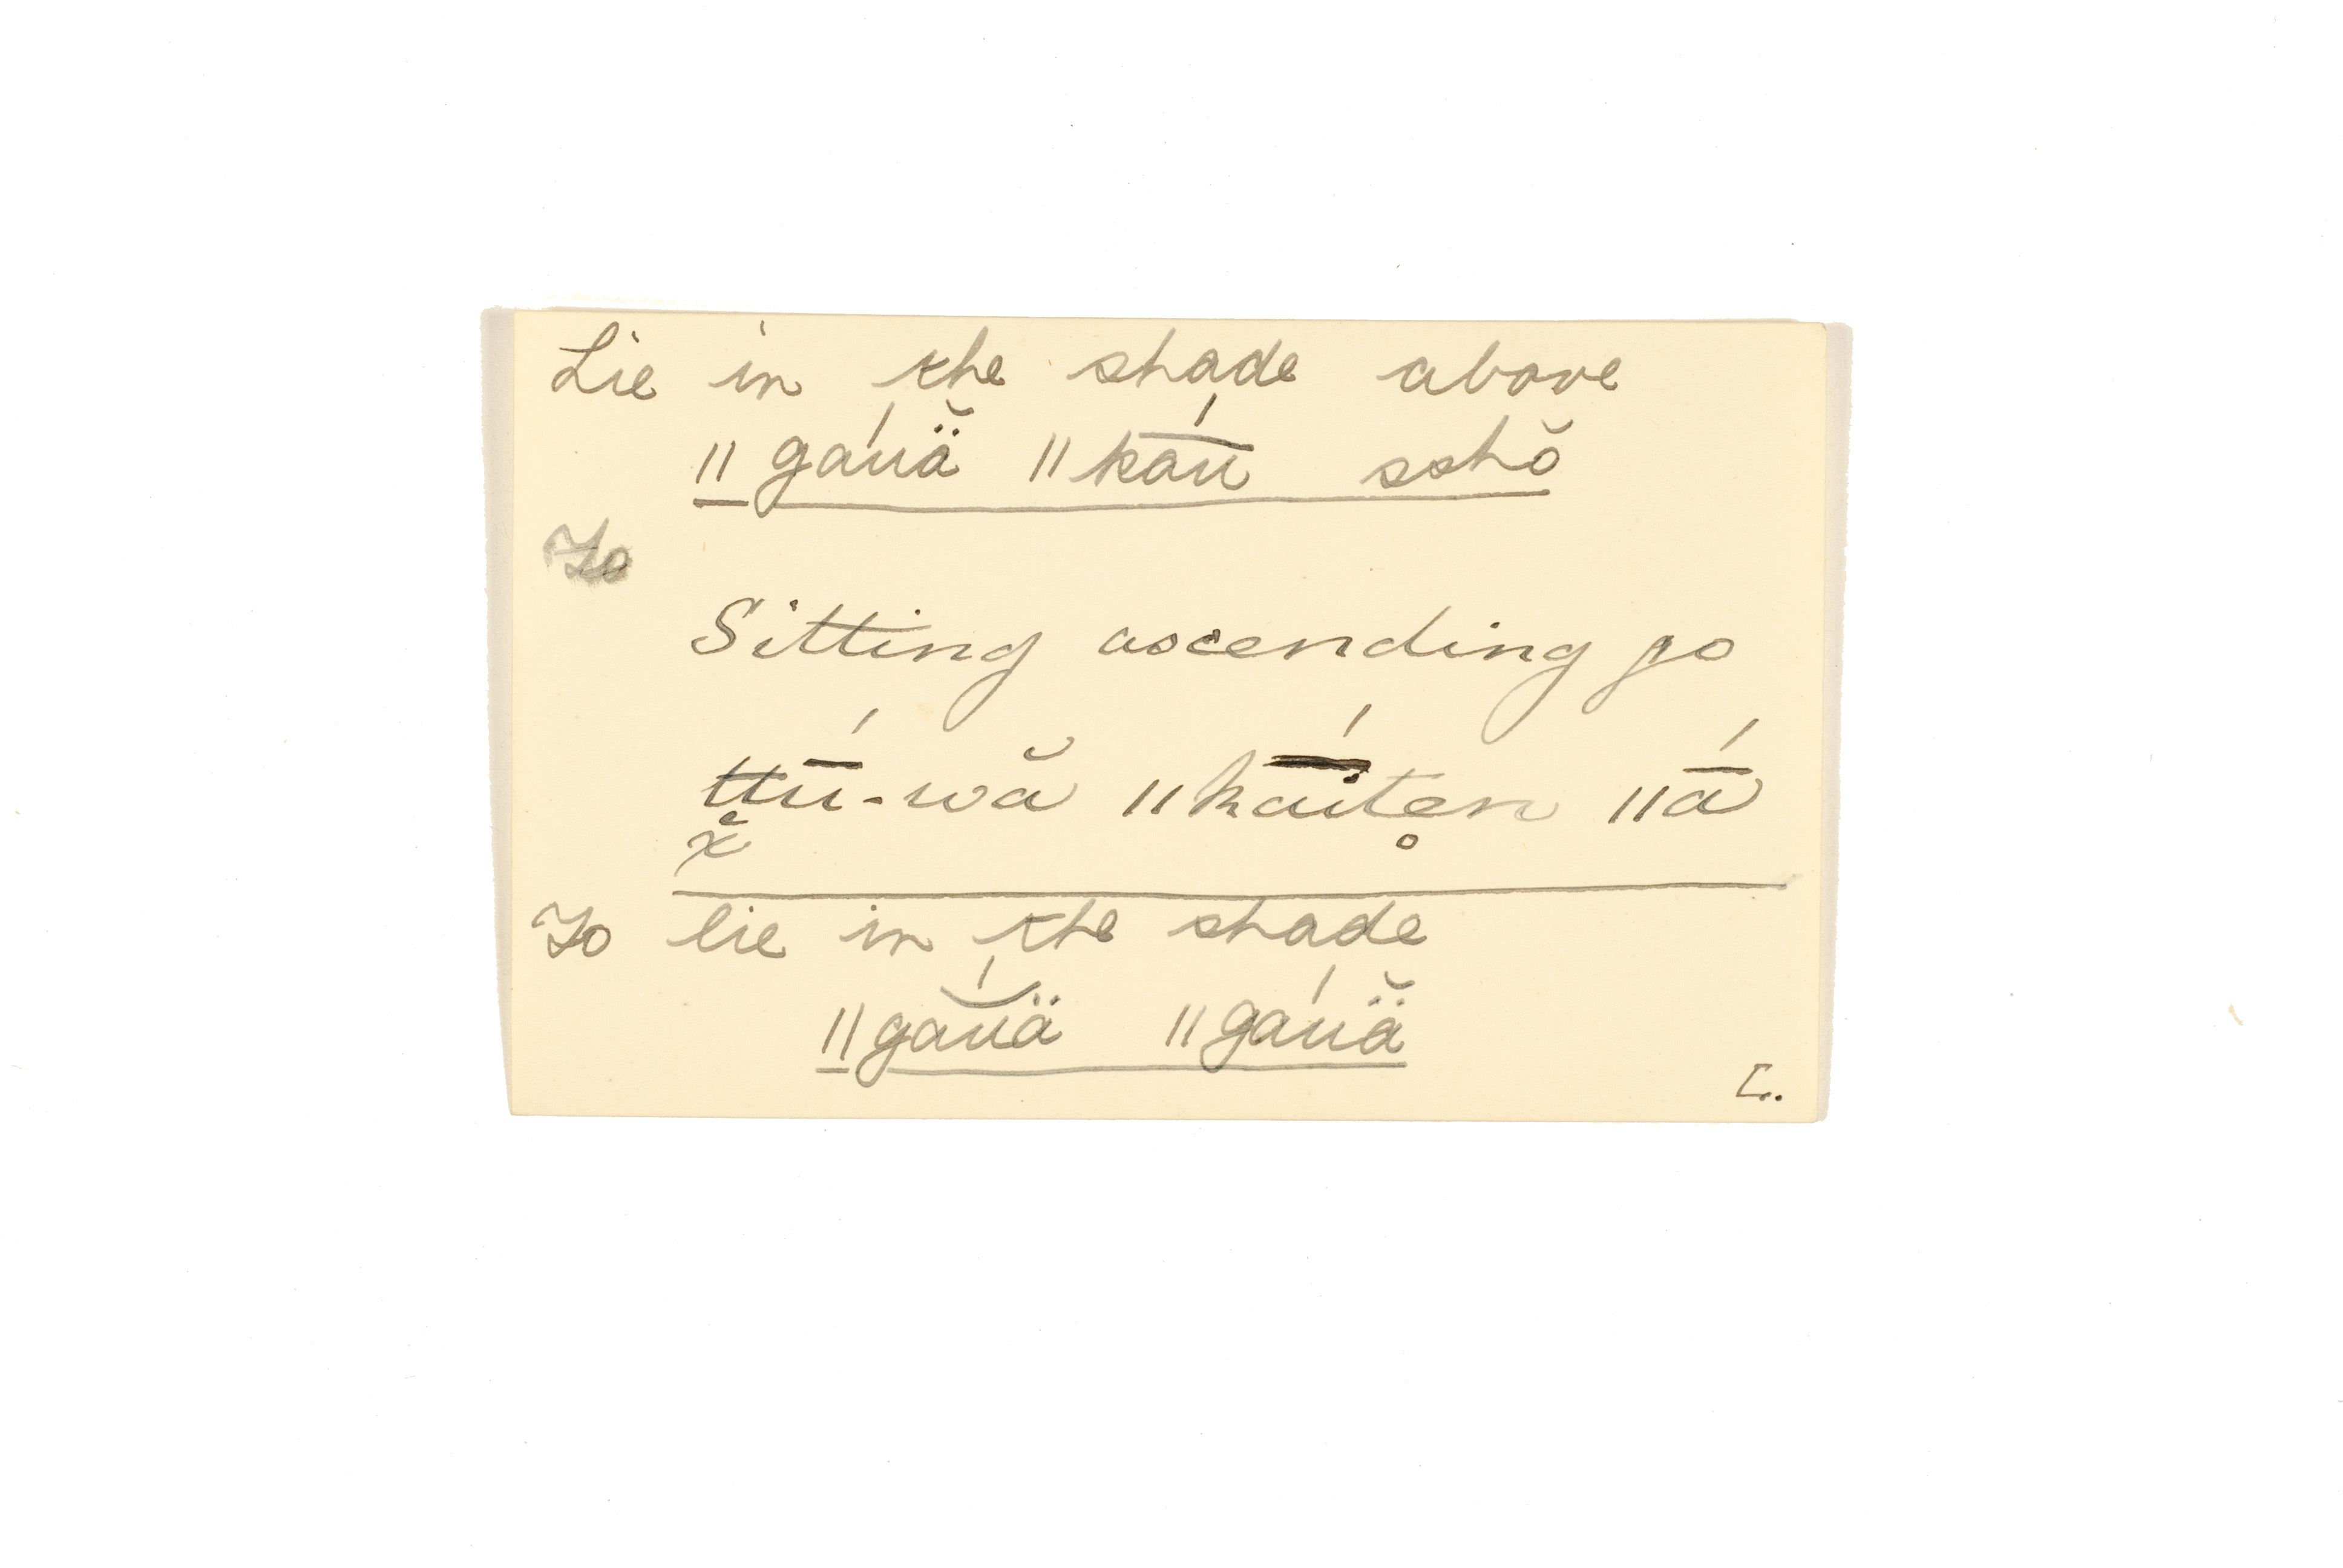 Lie in the shade above
ǁgáuä̆ ǁkā́ū sshŏ
To
Sitting ascending go
ttū́-wă ǁkā́īten ǁā́
x̆
To lie in the shade
ǁgắŭä ǁgáuä̆
L.